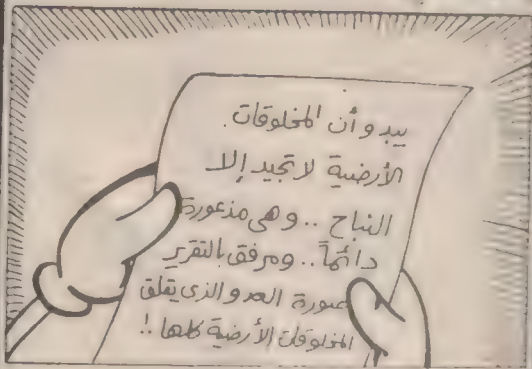 يبدو أن المخلوقات
الأرضية لا تجيد إلا
النباح .. وهى مذعورة
دائماً .. ومرفق بالتقرير
صورة العدو الذى يقلق
المخلوقات الأرضية كلها !.